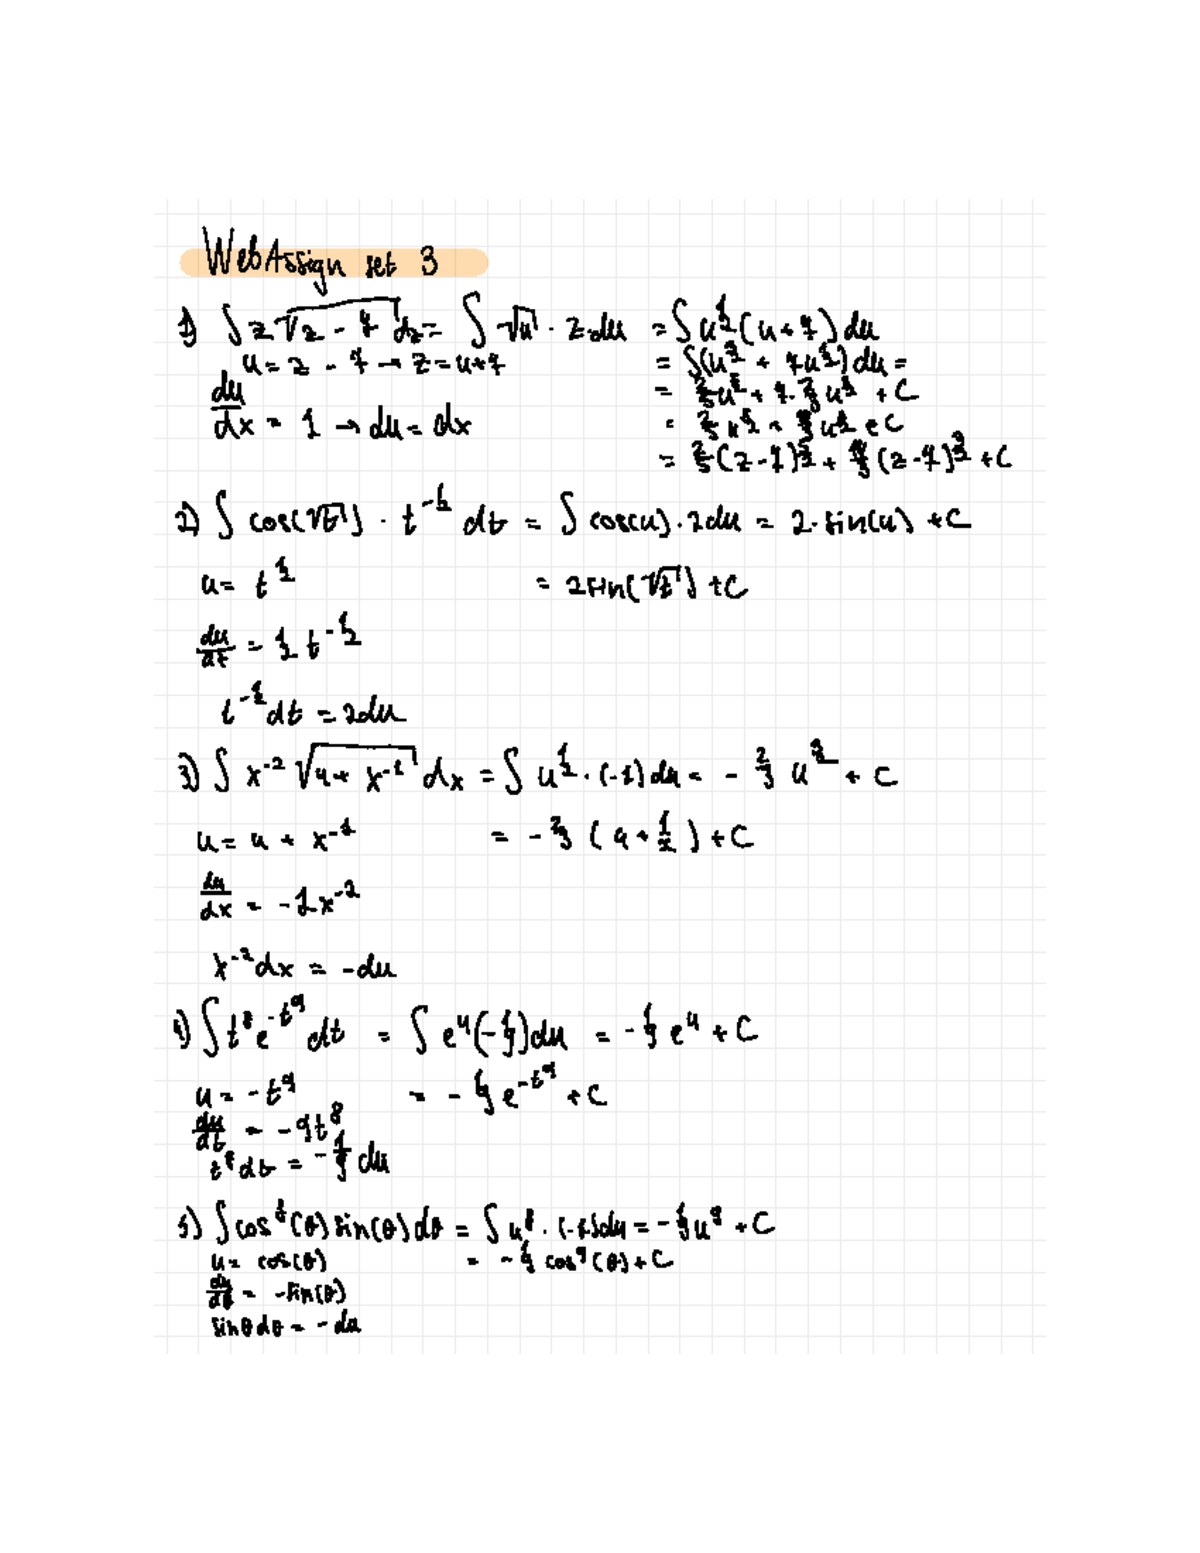 WebAssign set 3
1) ∫ z√(z - 7) dz = ∫ √u · z du = ∫ u^(1/2) (u + 7) du
u = z - 7 → z = u + 7 = ∫ (u^(3/2) + 7u^(1/2)) du =
= 2/5 u^(5/2) + 7 · 2/3 u^(3/2) + C
du/dx = 1 → du = dx = 2/5 u^(5/2) + 14/3 u^(3/2) + C
= 2/5 (z - 7)^(5/2) + 14/3 (z - 7)^(3/2) + C
2) ∫ cos(√t) · t^(-1/2) dt = ∫ cos(u) · 2du = 2 · sin(u) + C
u = t^(1/2) = 2sin(√t) + C
du/dt = 1/2 t^(-1/2)
t^(-1/2) dt = 2du
3) ∫ x^(-2) √(4 + x^(-1)) dx = ∫ u^(1/2) · (-1) du = - 2/3 u^(3/2) + C
u = 4 + x^(-1) = - 2/3 (4 + 1/x) + C
du/dx = -1x^(-2)
x^(-2) dx = -du
4) ∫ t^8 e^(-t^9) dt = ∫ e^u (-1/9) du = - 1/9 e^u + C
u = -t^9 = - 1/9 e^(-t^9) + C
du/dt = -9t^8
t^8 dt = - 1/9 du
5) ∫ cos^8(θ) sin(θ) dθ = ∫ u^8 · (-1) du = - 1/9 u^9 + C
u = cos(θ) = - 1/9 cos^9(θ) + C
du/dθ = -sin(θ)
sinθ dθ = - du